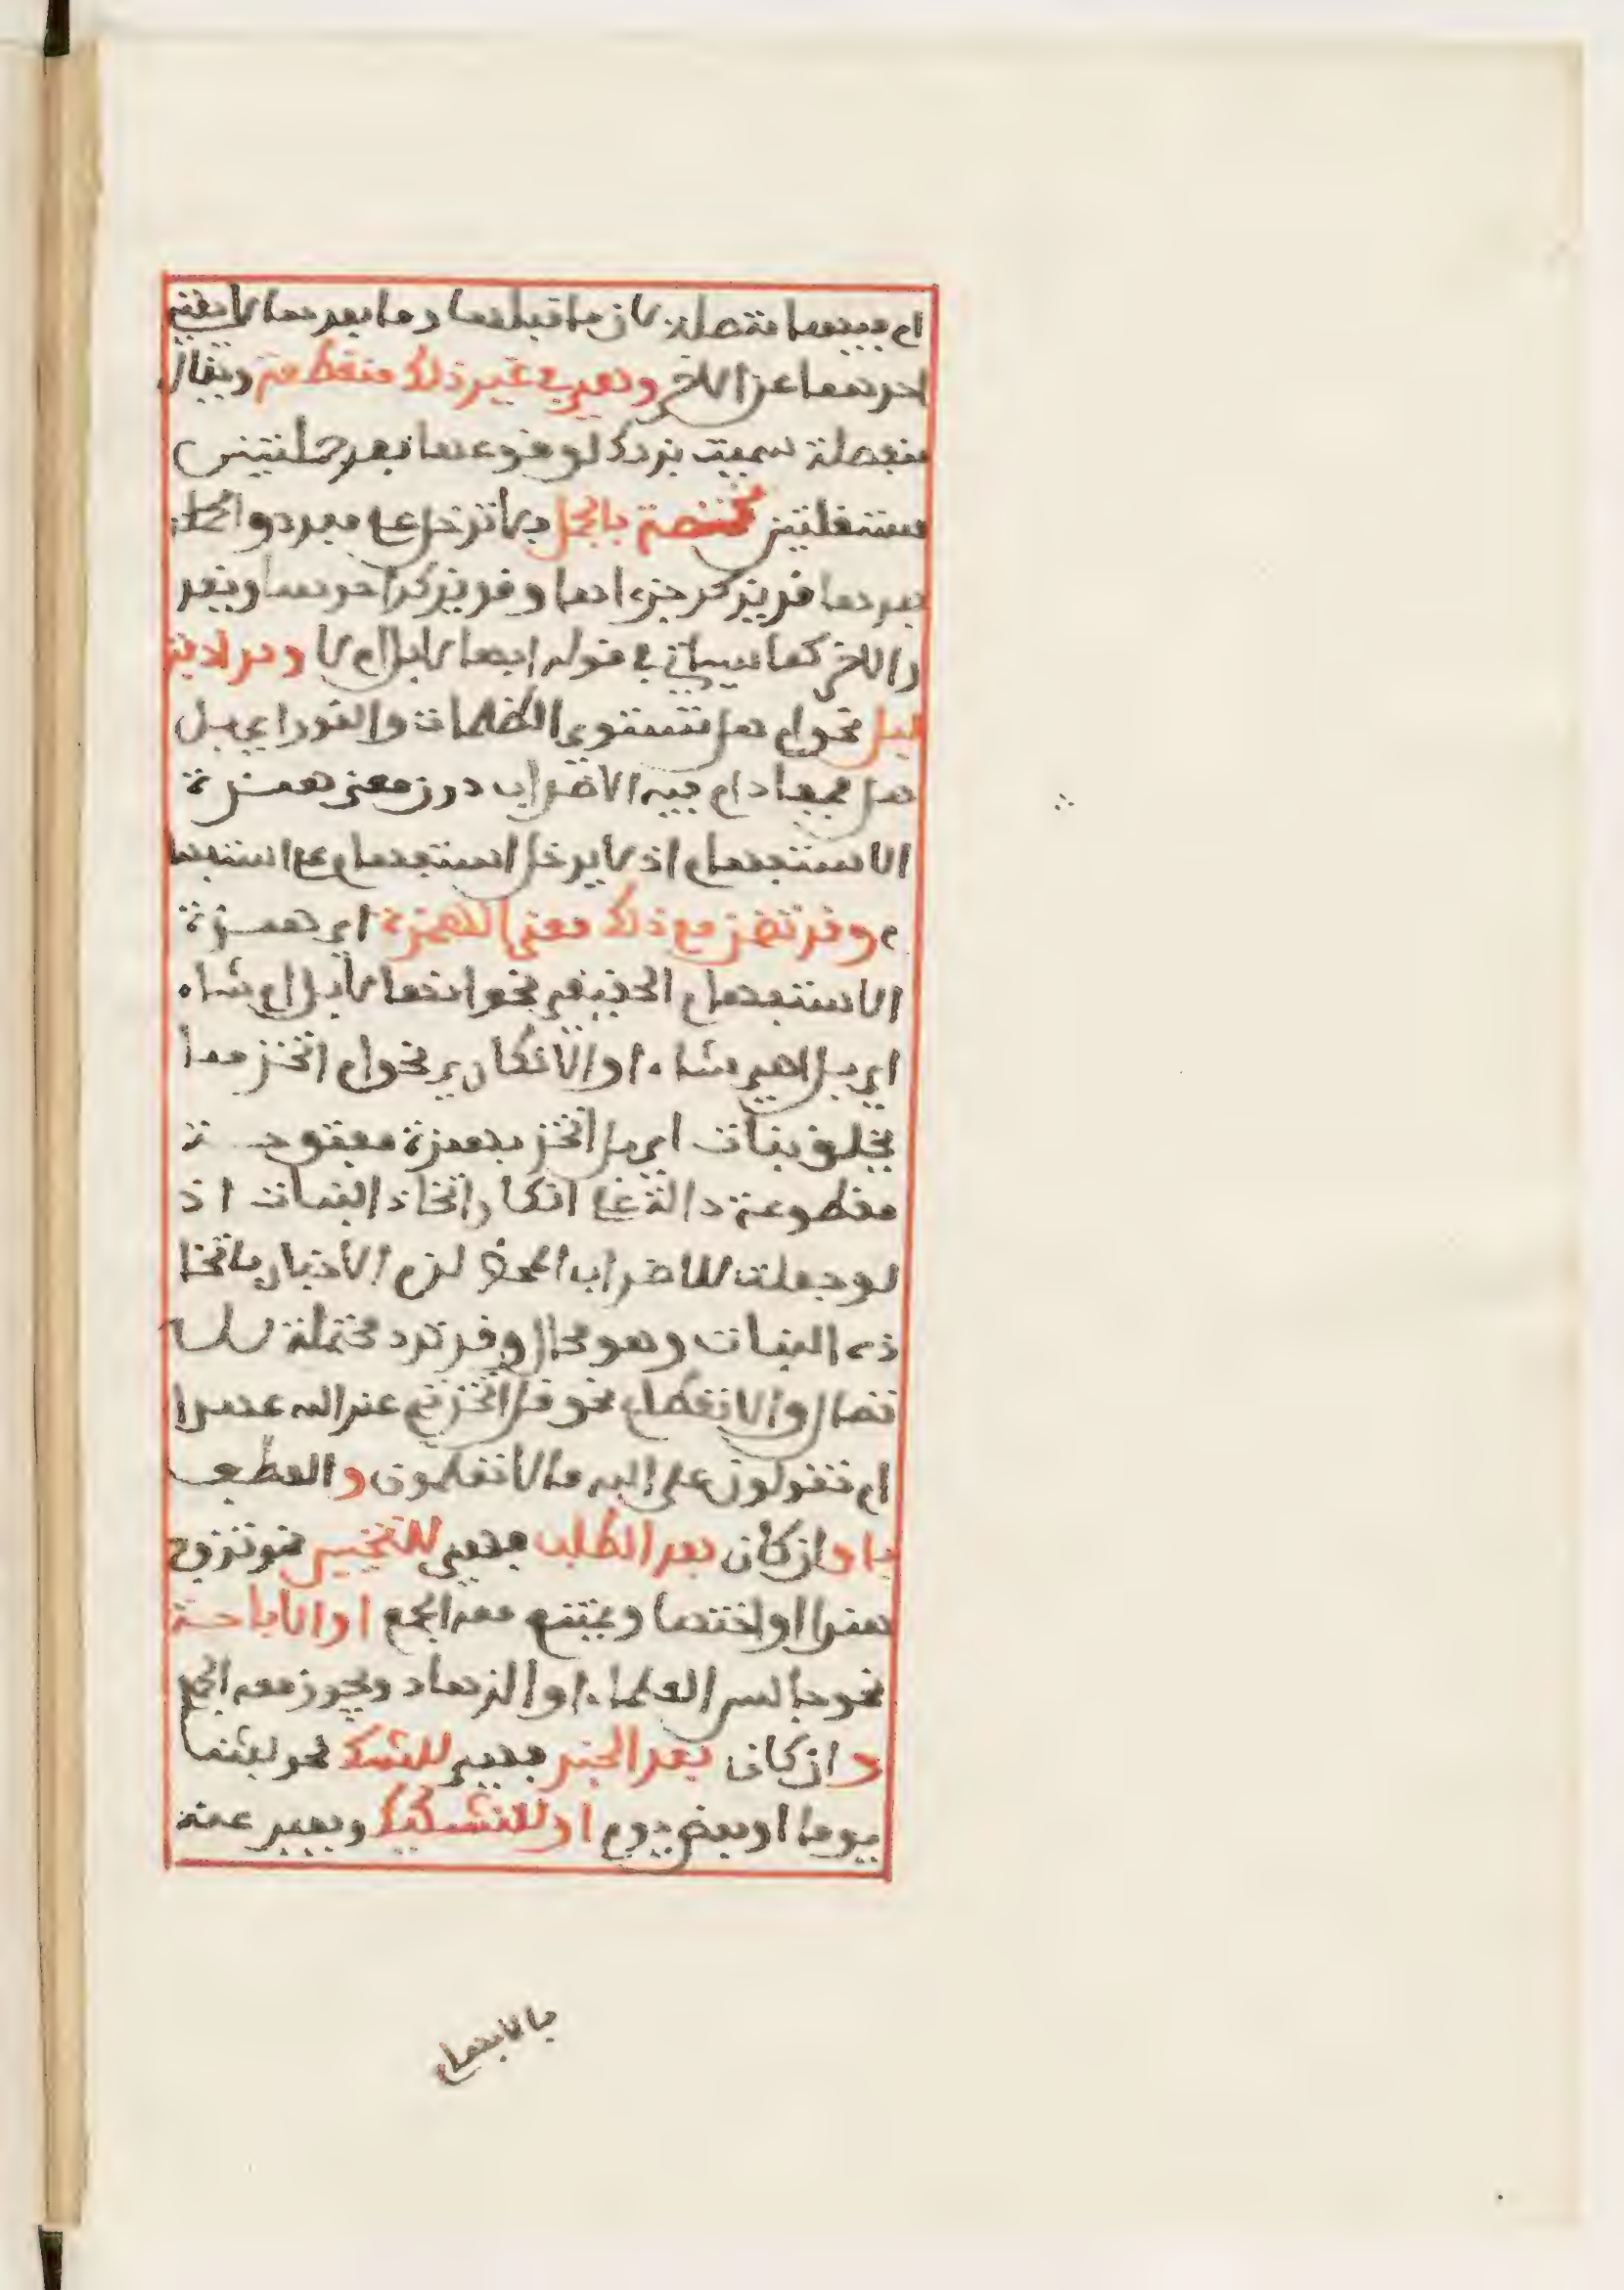 ام فيهما متصلة لان ما قبلها وما بعدها لا يغني
احدهما عن الاخر وهي في غير ذلك منقطعة ويقال
منفصلة سميت بذلك لوقوعها بعد جملتين
مستقلتين مختصة بالجمل ولا تدخل على مفرد والجملة
بعدها قد يذكر جزءاها وقد يذكر احدهما ويقد
ر الاخر كما سياتي في قوله ايها لا بل ام لا ومرادفة
لبل نحو ام هل تستوي الظلمات والنور اي بل
هل فجعل ام فيه الاضراب دون معنى همزة
الاستفهام اذ لا يدخل استفهام على استفها
م وقد تضمن مع ذلك معنى الهمزة اي همزة
الاستفهام الحقيقي نحو انها لابل ام شاء
اي بل اهي شاء او الانكاري نحو ام اتخذ مما
يخلق بنات اي بل اتخذ بهمزة مفتوحة
مقطوعة دالة على انكار اتخاذ البنات اذ
لو جعلت للاضراب المحض لزم الاخبار باتخا
ذه البنات وهو محال وقد ترد محتملة للا
تصال والانقطاع نحو قل اتخذتم عند الله عهدا
ام تقولون على الله ما لا تعلمون والعطف
باو ان كان بعد الطلب فهي للتخيير نحو تزوج
هندا او اختها ويمتنع معه الجمع او الاباحة
نحو جالس العلماء او الزهاد ويجوز معه الجمع
وان كان بعد الخبر فهي للشك نحو لبثنا
يوما او بعض يوم او للتشكيك ويعبر عنه
بالابهام